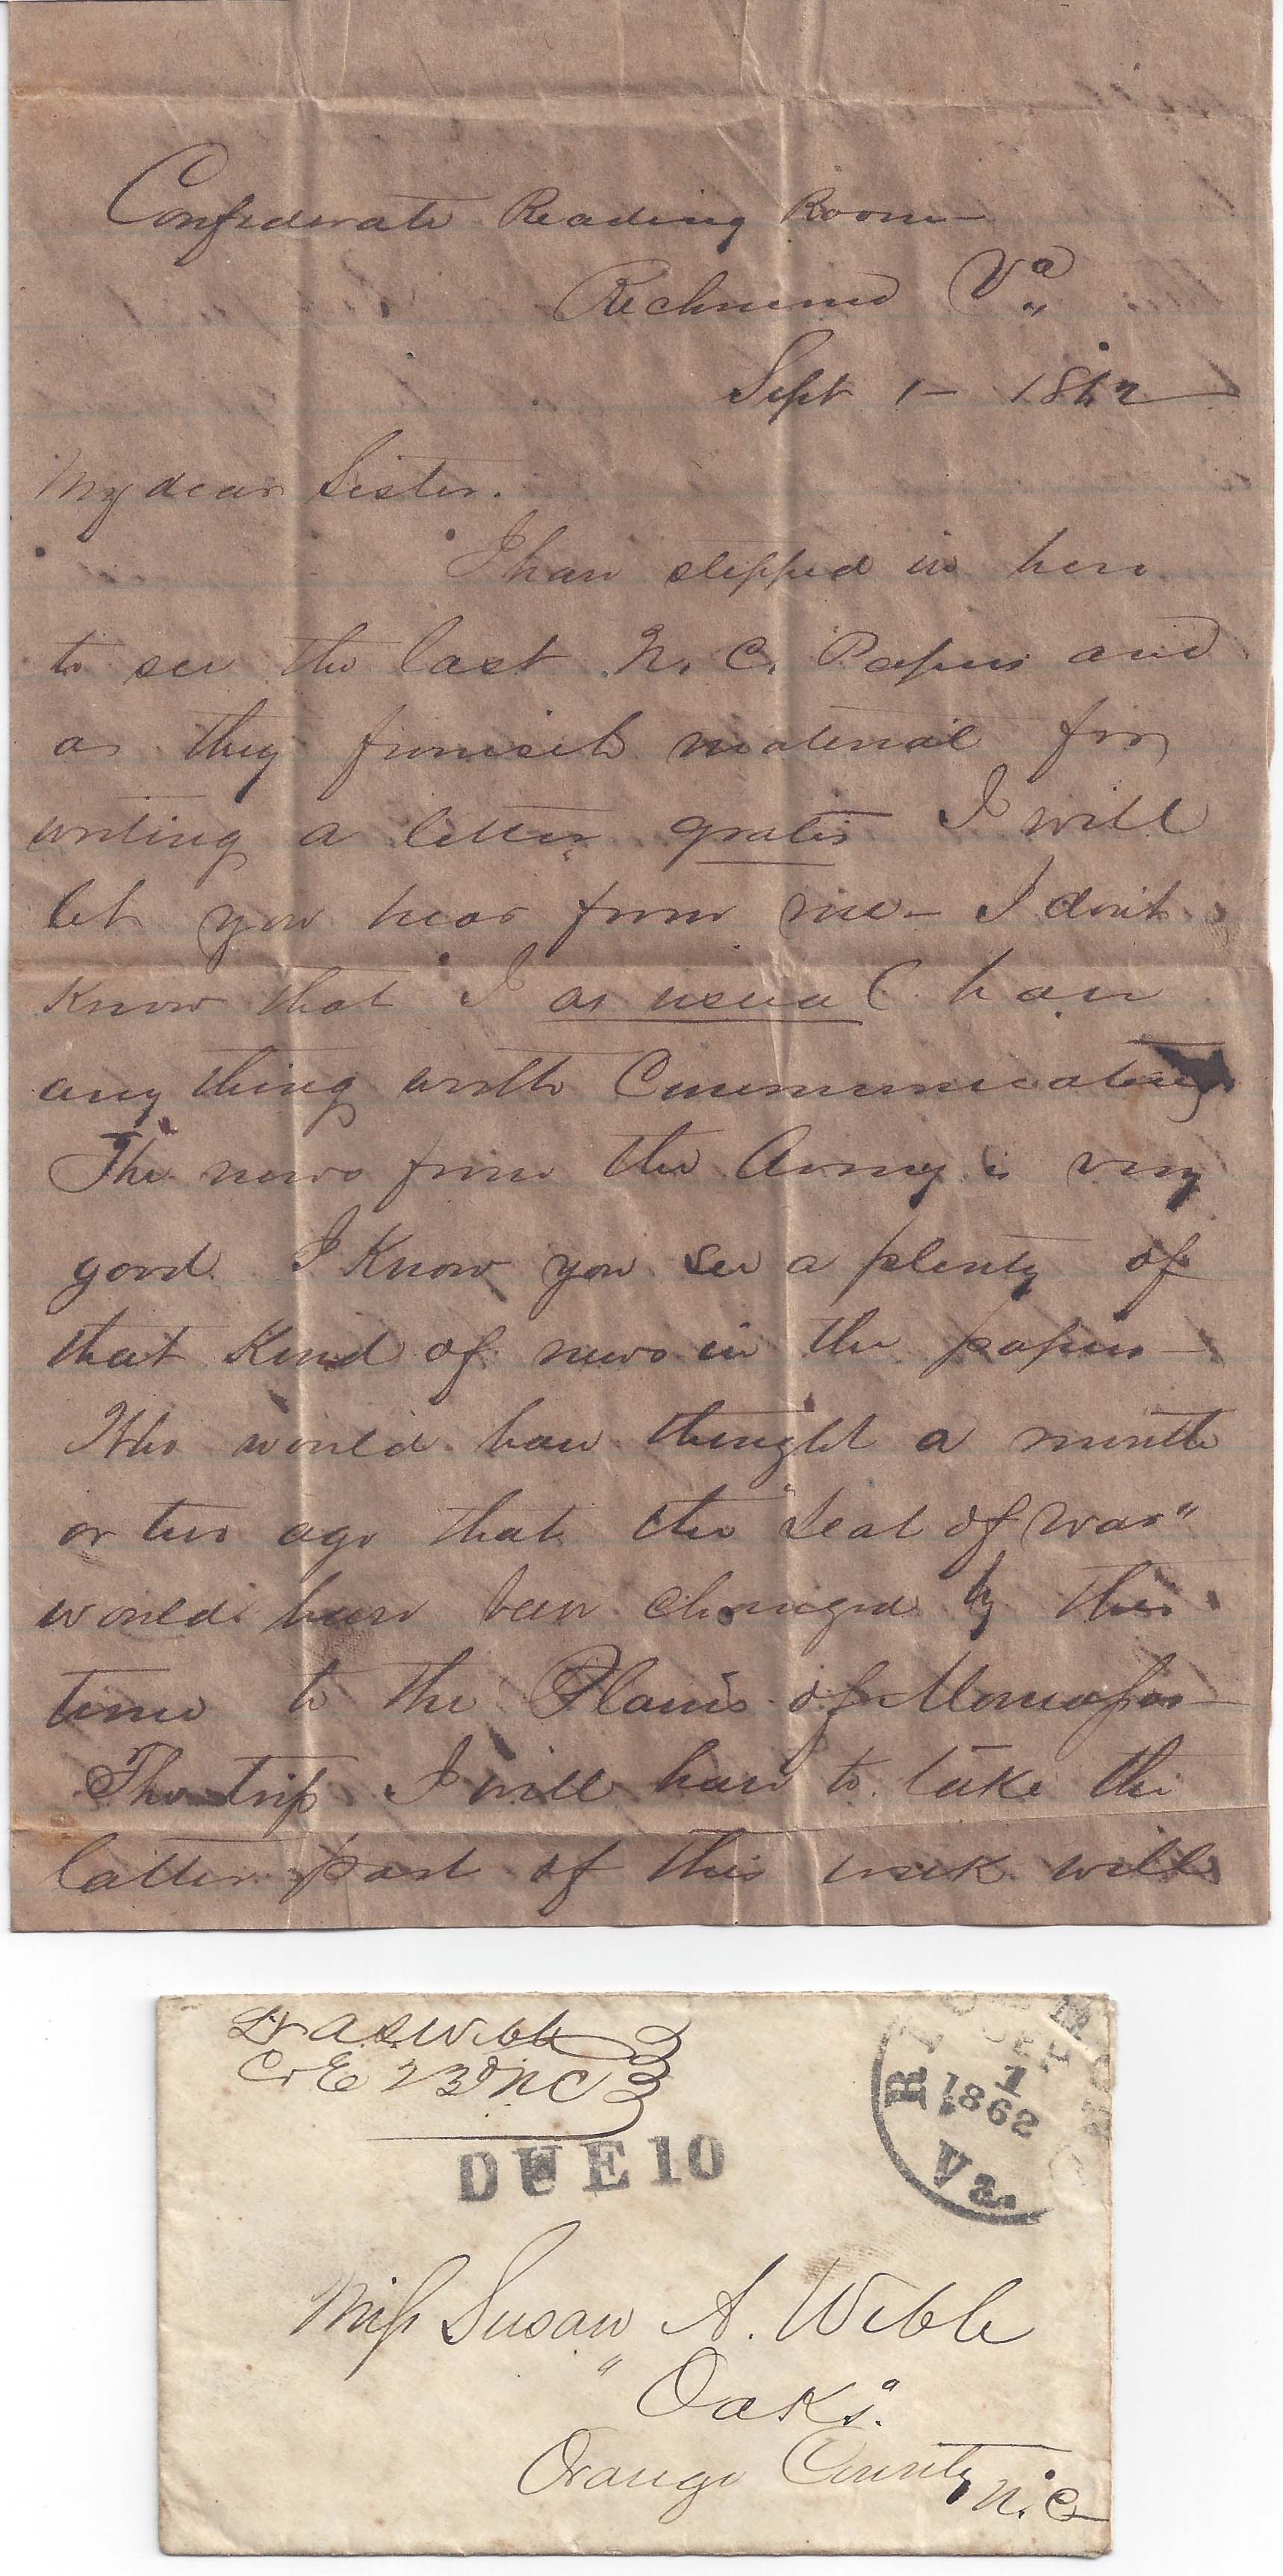 Confederate Reading Room—
Richmond Va
Sept 1— 1862
My dear Sister.
I have stepped in here
to see the last N. C. Papers and
as they furnish material for
writing a letter gratis I will
let you hear from me— I don't
know that I as usual have
any thing worth Communicating
The news from the Army is very
good. I know you see a plenty of
that kind of news in the papers—
Who would have thought a month
or two ago that the "Seat of war"
would have been changed by this
time to the Plains of Manassas—
The trip I will have to take the
latter part of this week will
Lt A.S. Webb
Co E 23d NC
DUE 10
RICHMOND
SEP
1
1862
Va.
Miss Susan A. Webb
"Oaks".
Orange County N.C.